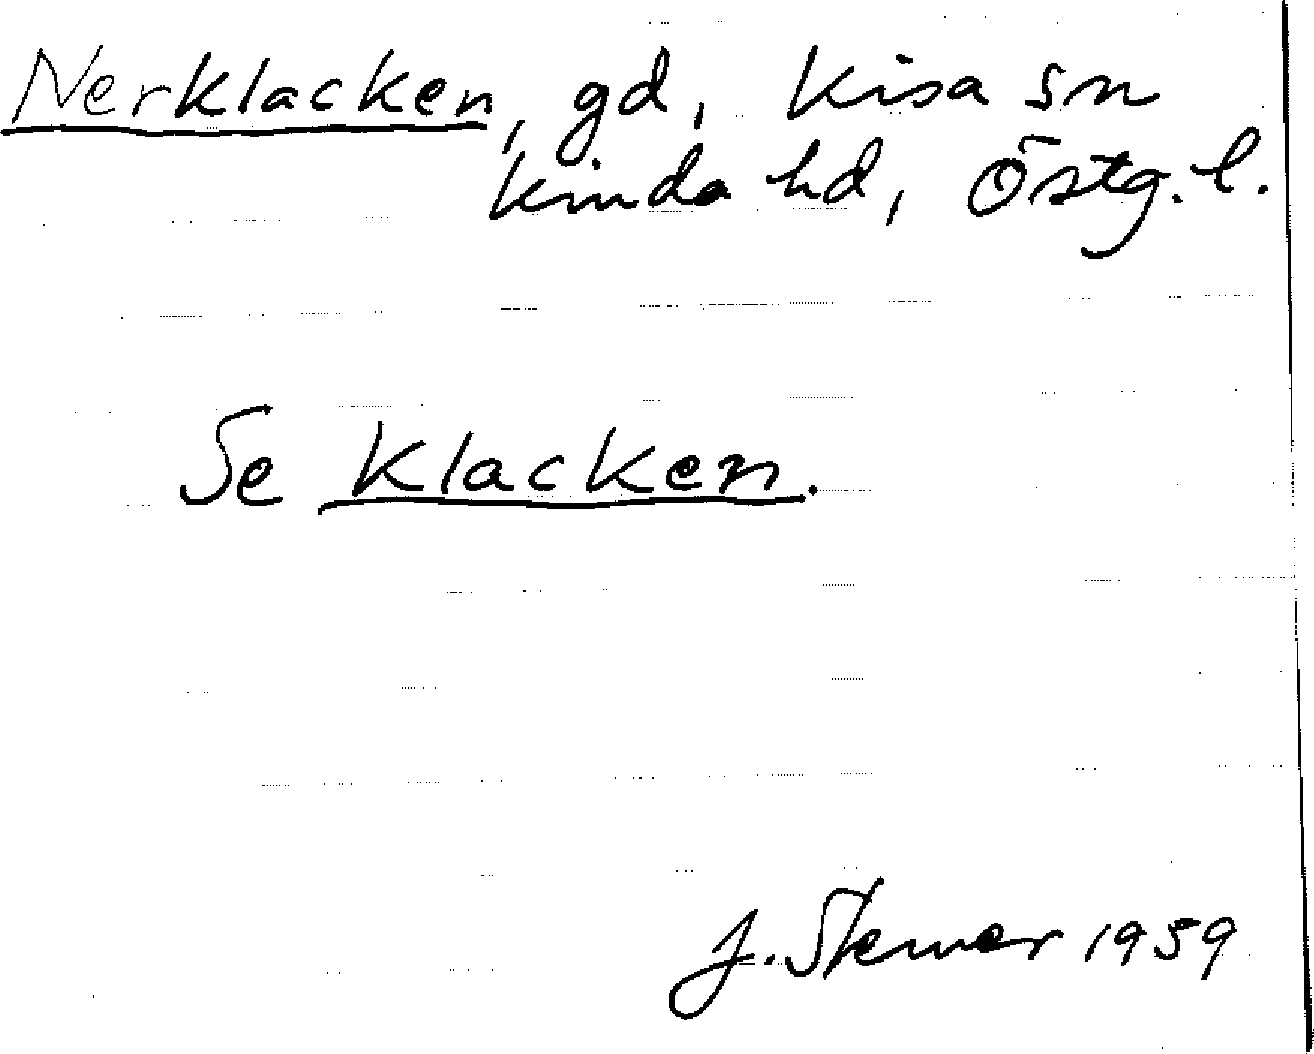 Nerklacken, gd, Kisa sn
Kinda hd, Östg. l.
Se Klacken.
J. Stemer 1959